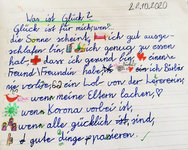 22.10.2020
Was ist Glück?
Glück ist für mich, wenn
die Sonne scheint, ich gut ausge-
schlafen bin, ich genug zu essen
hab, dass ich gesund bin, einen
Freund\Freundin habe, ein
ein Lob von der Lehrerin,
wenn meine Eltern lachen,
wenn Korona vorbei ist,
wenn alle glücklich sind,
gute dinge passieren.